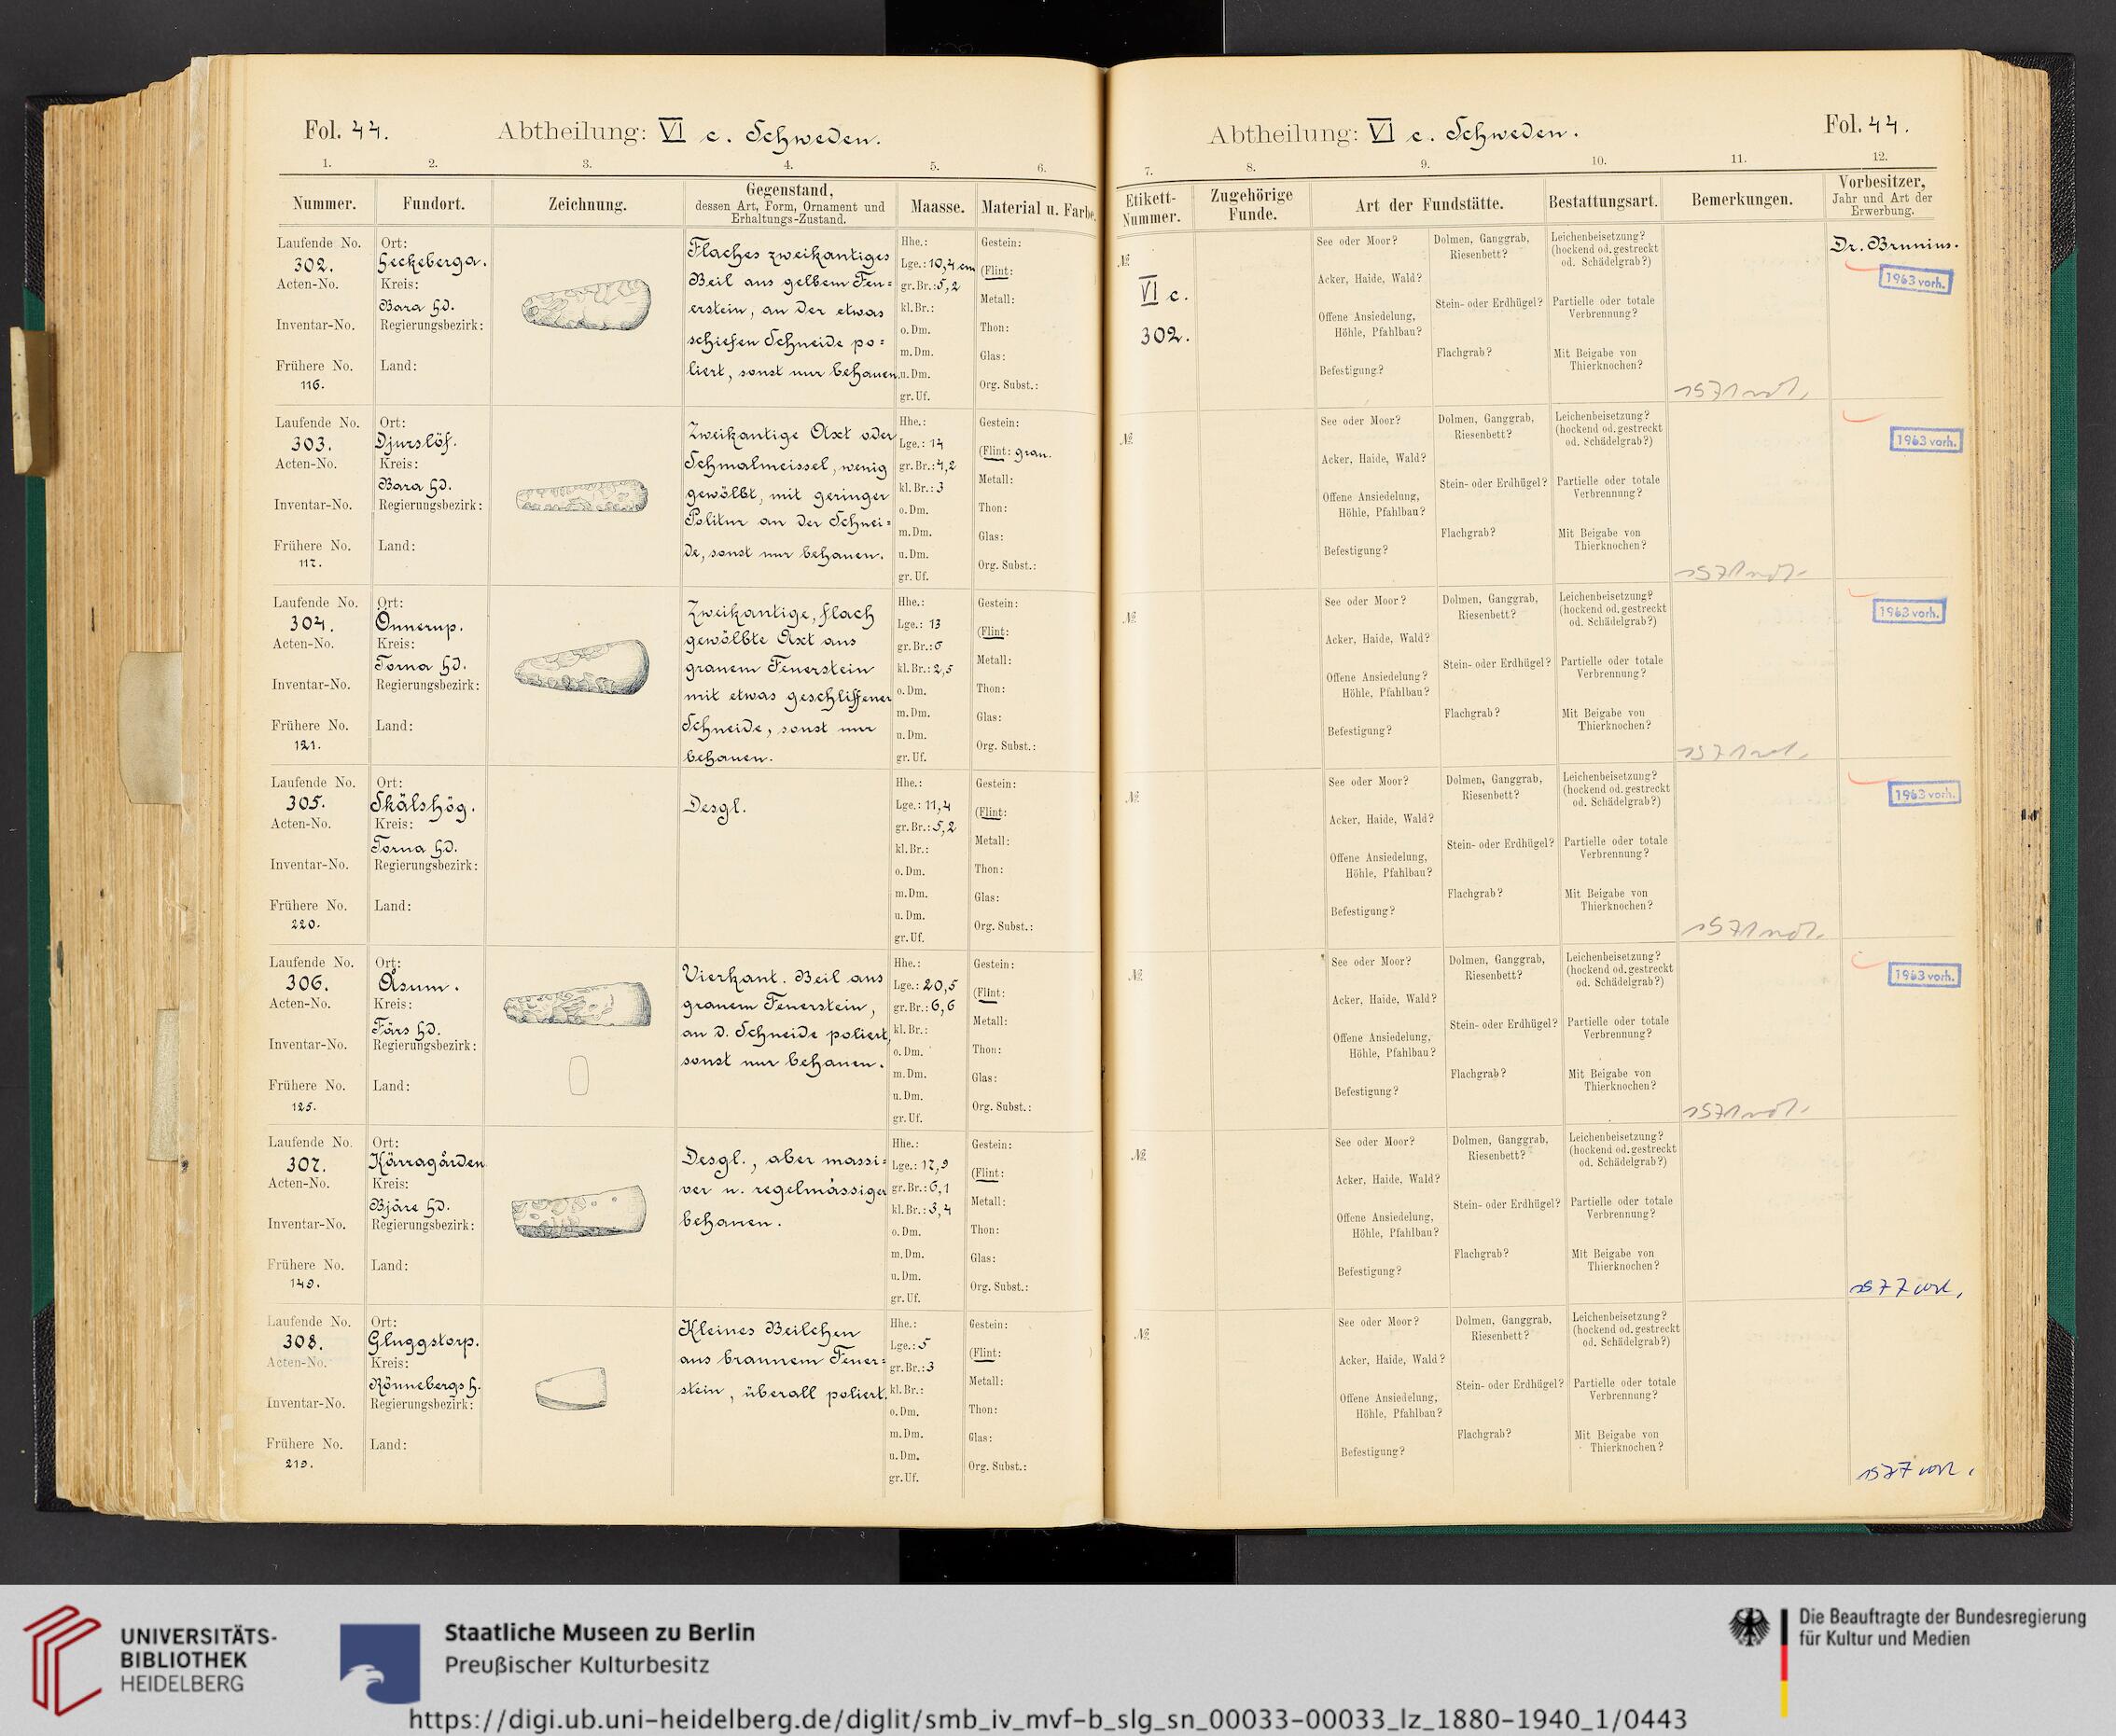 Fol. 44. Abtheilung: VI c. Schweden.
1. 2. 3. 4. 5. 6.
Nummer. Fundort. Zeichnung. Gegenstand, dessen Art, Form, Ornament und Erhaltungs-Zustand. Maasse. Material u. Farbe.
Laufende No.
302.
Acten-No.
Inventar-No.
Frühere No.
116.
Ort:
Heckeberga.
Kreis:
Bara Hd.
Regierungsbezirk:
Land:
Flaches zweikantiges
Beil aus gelbem Feu=
erstein, an der etwas
schiefen Schneide po=
liert, sonst nur behauen.
Hhe.:
Lge.: 10,4 cm
gr. Br.: 5,2
kl. Br.:
o. Dm.
m. Dm.
u. Dm.
gr. Uf.
Gestein:
(Flint: )
Metall:
Thon:
Glas:
Org. Subst.:
Laufende No.
303.
Acten-No.
Inventar-No.
Frühere No.
117.
Ort:
Djurslöf.
Kreis:
Bara Hd.
Regierungsbezirk:
Land:
Zweikantige Axt oder
Schmalmeissel, wenig
gewölbt, mit geringer
Politur an der Schnei=
de, sonst nur behauen.
Hhe.:
Lge.: 14
gr. Br.: 4,2
kl. Br.: 3
o. Dm.
m. Dm.
u. Dm.
gr. Uf.
Gestein:
(Flint: grau.
Metall:
Thon:
Glas:
Org. Subst.:
Laufende No.
304.
Acten-No.
Inventar-No.
Frühere No.
121.
Ort:
Önnerup.
Kreis:
Torna Hd.
Regierungsbezirk:
Land:
Zweikantige, flach
gewölbte Axt aus
grauem Feuerstein
mit etwas geschliffener
Schneide, sonst nur
behauen.
Hhe.:
Lge.: 13
gr. Br.: 6
kl. Br.: 2,5
o. Dm.
m. Dm.
u. Dm.
gr. Uf.
Gestein:
(Flint: )
Metall:
Thon:
Glas:
Org. Subst.:
Laufende No.
305.
Acten-No.
Inventar-No.
Frühere No.
220.
Ort:
Skälshög.
Kreis:
Torna Hd.
Regierungsbezirk:
Land:
Desgl.
Hhe.:
Lge.: 11,4
gr. Br.: 5,2
kl. Br.:
o. Dm.
m. Dm.
u. Dm.
gr. Uf.
Gestein:
(Flint: )
Metall:
Thon:
Glas:
Org. Subst.:
Laufende No.
306.
Acten-No.
Inventar-No.
Frühere No.
125.
Ort:
Åsum.
Kreis:
Färs Hd.
Regierungsbezirk:
Land:
Vierkant. Beil aus
grauem Feuerstein,
an d. Schneide poliert,
sonst nur behauen.
Hhe.:
Lge.: 20,5
gr. Br.: 6,6
kl. Br.:
o. Dm.
m. Dm.
u. Dm.
gr. Uf.
Gestein:
(Flint: )
Metall:
Thon:
Glas:
Org. Subst.:
Laufende No.
307.
Acten-No.
Inventar-No.
Frühere No.
149.
Ort:
Kärragården
Kreis:
Bjäre Hd.
Regierungsbezirk:
Land:
Desgl., aber massi=
ver u. regelmässiger
behauen.
Hhe.:
Lge.: 17,9
gr. Br.: 6,1
kl. Br.: 3,4
o. Dm.
m. Dm.
u. Dm.
gr. Uf.
Gestein:
(Flint: )
Metall:
Thon:
Glas:
Org. Subst.:
Laufende No.
308.
Acten-No.
Inventar-No.
Frühere No.
219.
Ort:
Gluggstorp.
Kreis:
Rönnebergs H.
Regierungsbezirk:
Land:
Kleines Beilchen
aus braunem Feuer=
stein, überall poliert.
Hhe.:
Lge.: 5
gr. Br.: 3
kl. Br.:
o. Dm.
m. Dm.
u. Dm.
gr. Uf.
Gestein:
(Flint: )
Metall:
Thon:
Glas:
Org. Subst.:
Abtheilung: VI c. Schweden. Fol. 44.
7. 8. 9. 10. 11. 12.
Etikett-Nummer. Zugehörige Funde. Art der Fundstätte. Bestattungsart. Bemerkungen. Vorbesitzer, Jahr und Art der Erwerbung.
№
VI c.
302.
See oder Moor?
Acker, Haide, Wald?
Offene Ansiedelung,
Höhle, Pfahlbau?
Befestigung?
Dolmen, Ganggrab,
Riesenbett?
Stein- oder Erdhügel?
Flachgrab?
Leichenbeisetzung?
(hockend od. gestreckt
od. Schädelgrab?)
Partielle oder totale
Verbrennung?
Mit Beigabe von
Thierknochen?
Dr. Brunius.
1963 vorh.
№
See oder Moor?
Acker, Haide, Wald?
Offene Ansiedelung,
Höhle, Pfahlbau?
Befestigung?
Dolmen, Ganggrab,
Riesenbett?
Stein- oder Erdhügel?
Flachgrab?
Leichenbeisetzung?
(hockend od. gestreckt
od. Schädelgrab?)
Partielle oder totale
Verbrennung?
Mit Beigabe von
Thierknochen?
1963 vorh.
№
See oder Moor?
Acker, Haide, Wald?
Offene Ansiedelung?
Höhle, Pfahlbau?
Befestigung?
Dolmen, Ganggrab,
Riesenbett?
Stein- oder Erdhügel?
Flachgrab?
Leichenbeisetzung?
(hockend od. gestreckt
od. Schädelgrab?)
Partielle oder totale
Verbrennung?
Mit Beigabe von
Thierknochen?
1963 vorh.
№
See oder Moor?
Acker, Haide, Wald?
Offene Ansiedelung,
Höhle, Pfahlbau?
Befestigung?
Dolmen, Ganggrab,
Riesenbett?
Stein- oder Erdhügel?
Flachgrab?
Leichenbeisetzung?
(hockend od. gestreckt
od. Schädelgrab?)
Partielle oder totale
Verbrennung?
Mit Beigabe von
Thierknochen?
1963 vorh.
№
See oder Moor?
Acker, Haide, Wald?
Offene Ansiedelung,
Höhle, Pfahlbau?
Befestigung?
Dolmen, Ganggrab,
Riesenbett?
Stein- oder Erdhügel?
Flachgrab?
Leichenbeisetzung?
(hockend od. gestreckt
od. Schädelgrab?)
Partielle oder totale
Verbrennung?
Mit Beigabe von
Thierknochen?
1963 vorh.
№
See oder Moor?
Acker, Haide, Wald?
Offene Ansiedelung,
Höhle, Pfahlbau?
Befestigung?
Dolmen, Ganggrab,
Riesenbett?
Stein- oder Erdhügel?
Flachgrab?
Leichenbeisetzung?
(hockend od. gestreckt
od. Schädelgrab?)
Partielle oder totale
Verbrennung?
Mit Beigabe von
Thierknochen?
№
See oder Moor?
Acker, Haide, Wald?
Offene Ansiedelung,
Höhle, Pfahlbau?
Befestigung?
Dolmen, Ganggrab,
Riesenbett?
Stein- oder Erdhügel?
Flachgrab?
Leichenbeisetzung?
(hockend od. gestreckt
od. Schädelgrab?)
Partielle oder totale
Verbrennung?
Mit Beigabe von
Thierknochen?
UNIVERSITÄTS-
BIBLIOTHEK
HEIDELBERG
Staatliche Museen zu Berlin
Preußischer Kulturbesitz
Die Beauftragte der Bundesregierung
für Kultur und Medien
https://digi.ub.uni-heidelberg.de/diglit/smb_iv_mvf-b_slg_sn_00033-00033_lz_1880-1940_1/0443